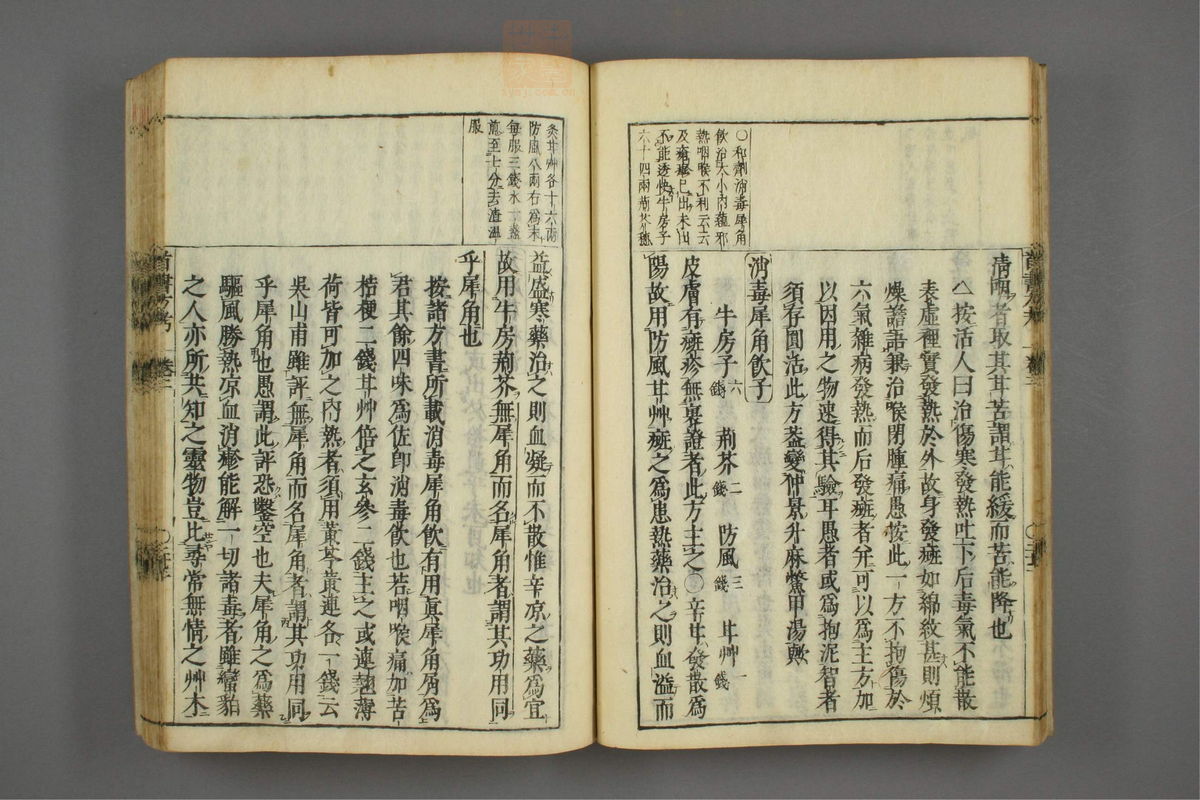 ○和劑消毒犀角
飲治大小內蘊邪
熱咽喉不利云云
及癰疹已出未出
不能透快牛房子
六十四兩荊芥穗
清兩者取其甘苦謂甘能緩而苦能降也
按活人曰治傷寒發熱吐下后毒氣不能散
表虛裡實發熱於外故身發癍如綿紋甚則煩
燥譫語兼治喉閉腫痛愚按此一方不拘傷於
六氣雜病發熱而后發癍者竝可以為主方加
以因用之物速得其驗耳愚者或為拘泥智者
須存圓活此方蓋變仲景升麻鱉甲湯歟
消毒犀角飲子
牛房子六錢 荊芥二錢 防風三錢 甘艸一錢
皮膚有癍疹無裏證者此方主之○辛甘發散為
陽故用防風甘艸癍之為患熱藥治之則血溢而
炙甘艸各十六兩
防風八兩右為末
每服三錢水一盞
煎至七分去渣溫
服
益盛寒藥治之則血凝而不散惟辛凉之藥為宜
故用牛房荊芥無犀角而名犀角者謂其功用同
乎犀角也
按諸方書所載消毒犀角飲有用真犀角屑為
君其餘四味為佐即消毒飲也若咽喉痛加苦
桔梗二錢甘艸倍之玄參二錢主之或連翹薄
荷皆可加之內熱者須用黃芩黃連各一錢云
吳山甫雖評無犀角而名犀角者謂其功用同
乎犀角也愚謂此評恐鑿空也夫犀角之為藥
驅風勝熱凉血消疹能解一切諸毒者雖蠻貊
之人亦所共知之靈物豈比尋常無情之艸木